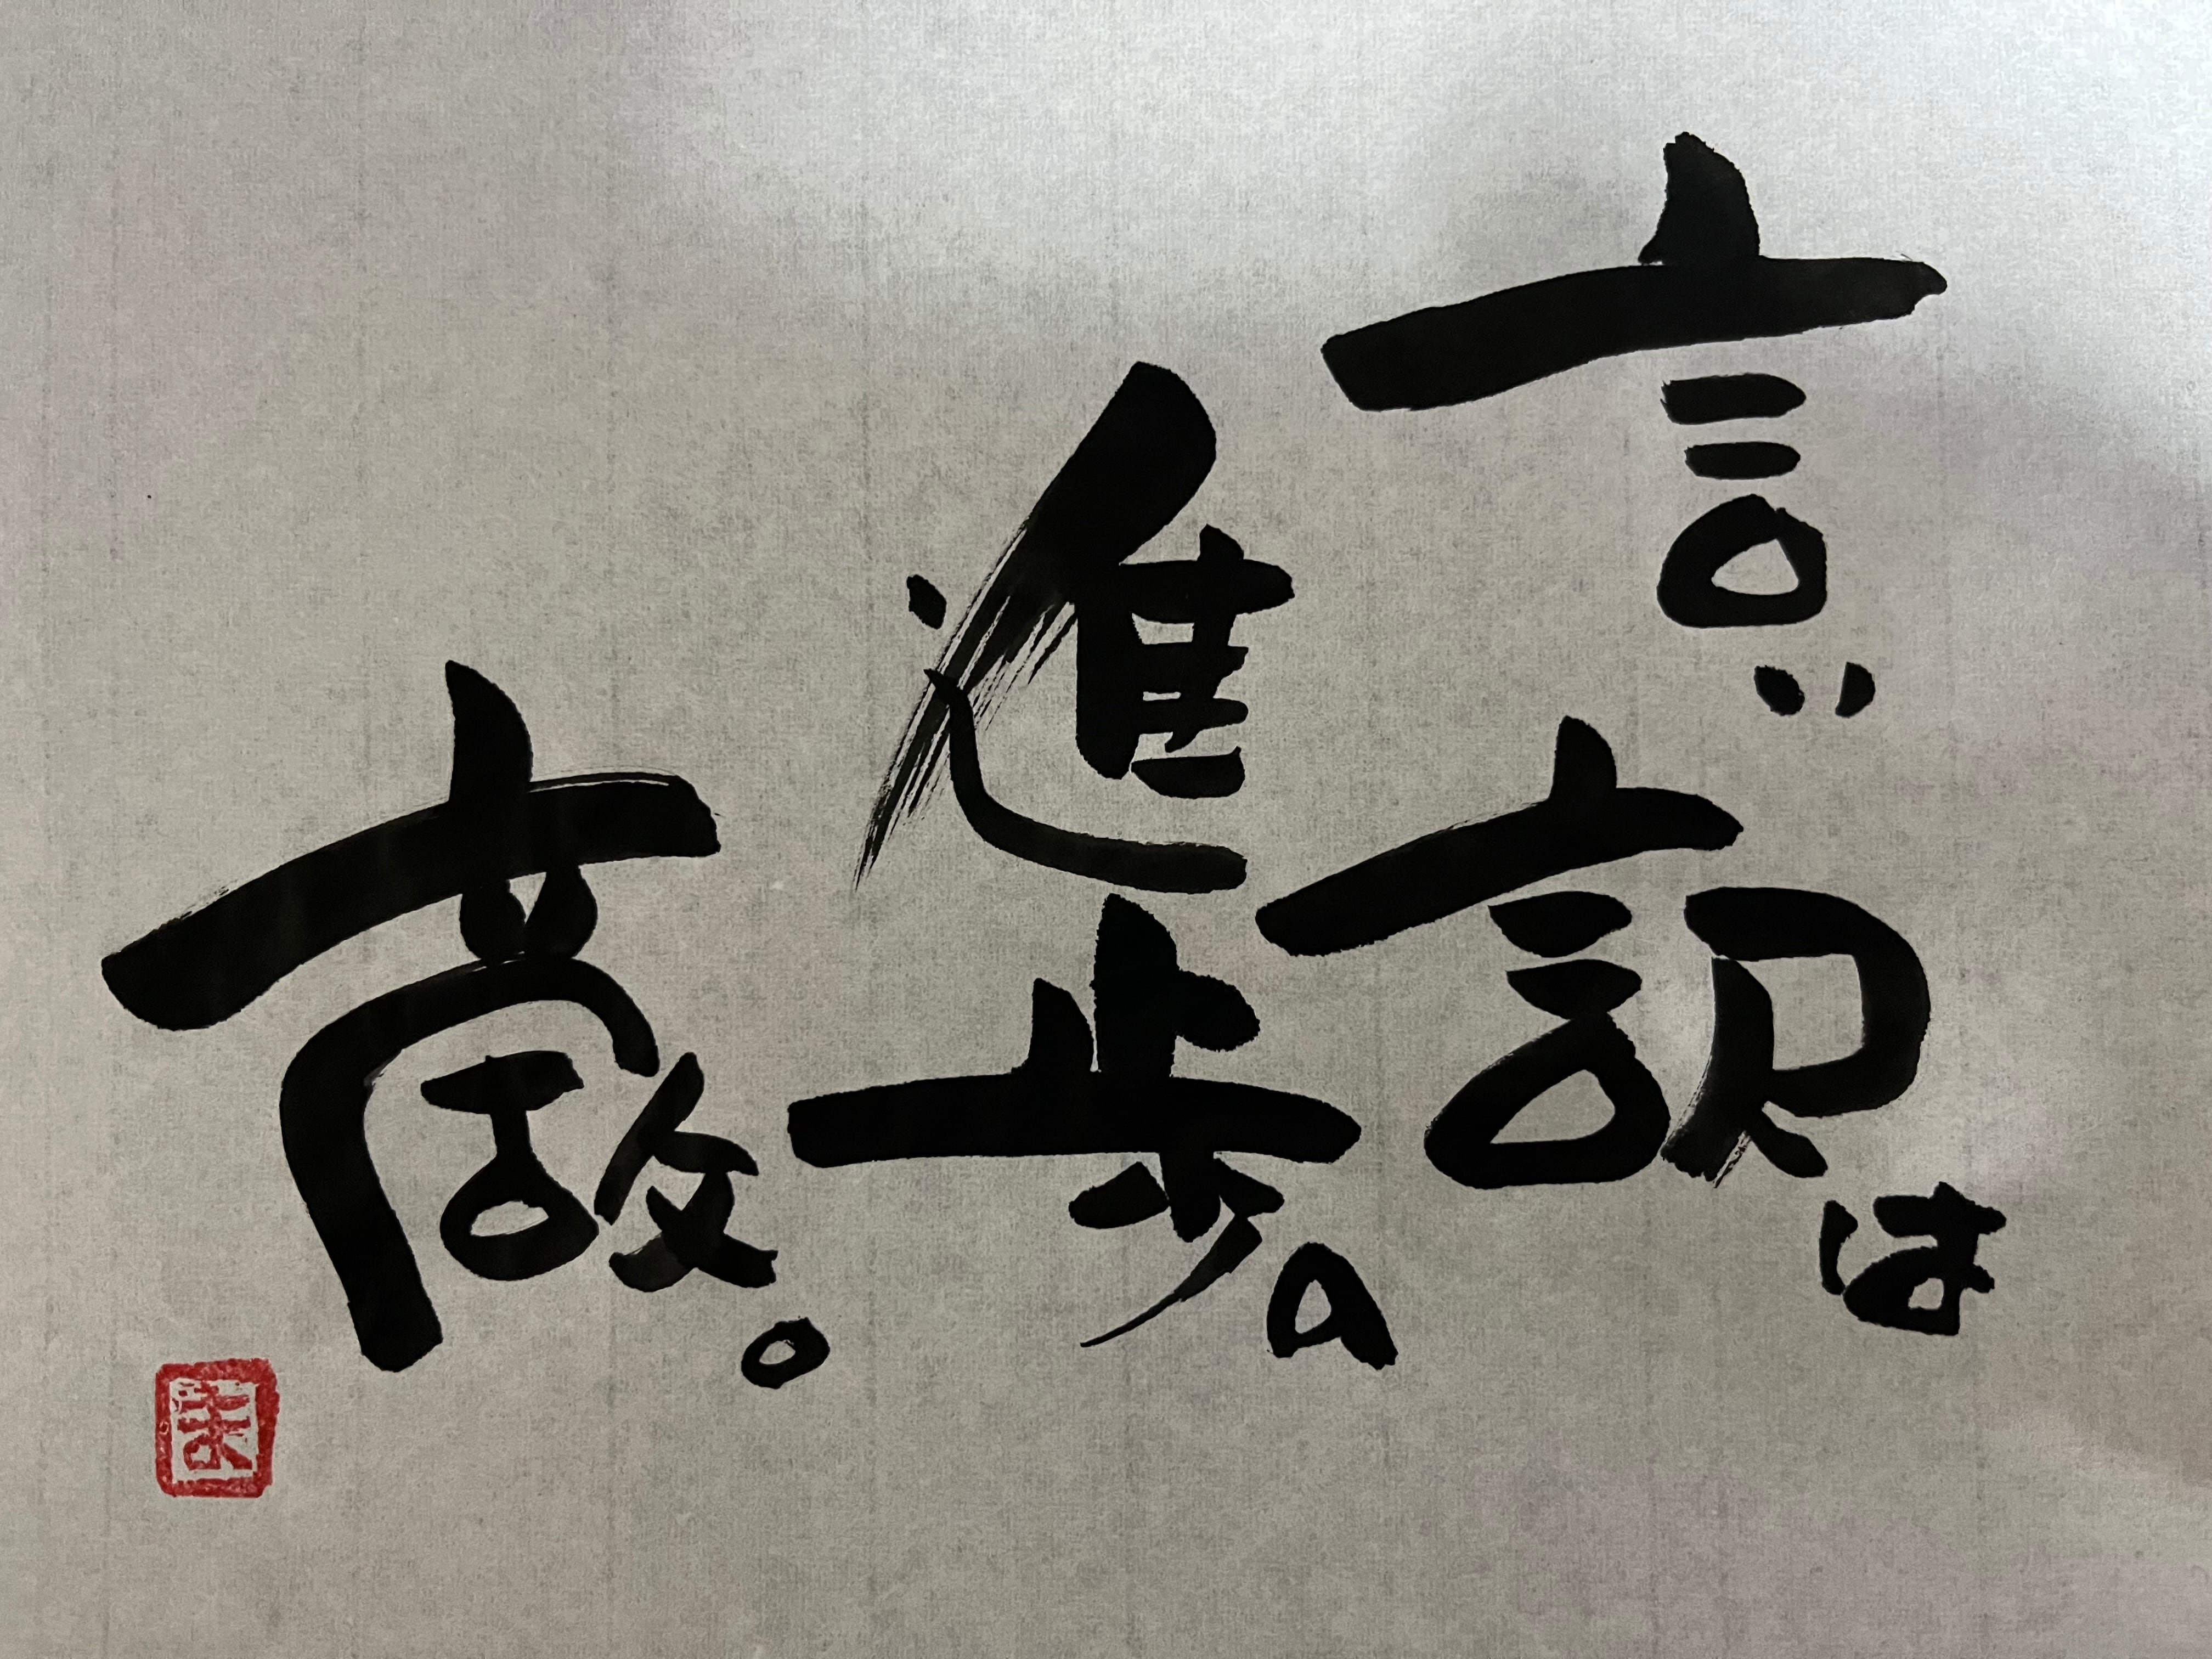 言い訳は
進歩の
敵。